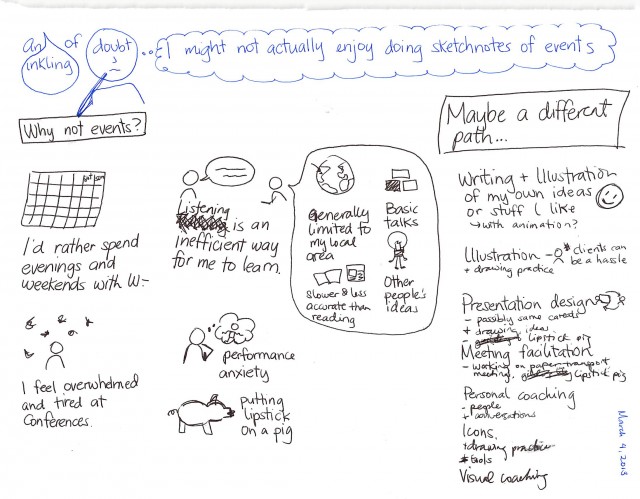 An inkling of doubt...
I might not actually enjoy doing sketchnotes of events
Why not events?
Sat Sun
I'd rather spend
evenings and
weekends with W-.
I feel overwhelmed
and tired at
Conferences.
Listening
is an
inefficient way
for me to learn.
Generally
limited to
my local
area
Basic
talks
Slower & less
accurate than
reading
Other
people's
ideas
performance
anxiety
putting
lipstick
on a pig
Maybe a different
path...
Writing + Illustration
of my own ideas
or stuff I like
↳ with animation?
Illustration - clients can
be a hassle
+ drawing practice
Presentation design
- possibly same caveats
+ drawing ideas
- lipstick pig
Meeting facilitation
- working on paper, transport
meeting, lipstick pig
Personal coaching
- people
+ conversations
Icons.
+ drawing practice
* tools
Visual coaching
March 4, 2013